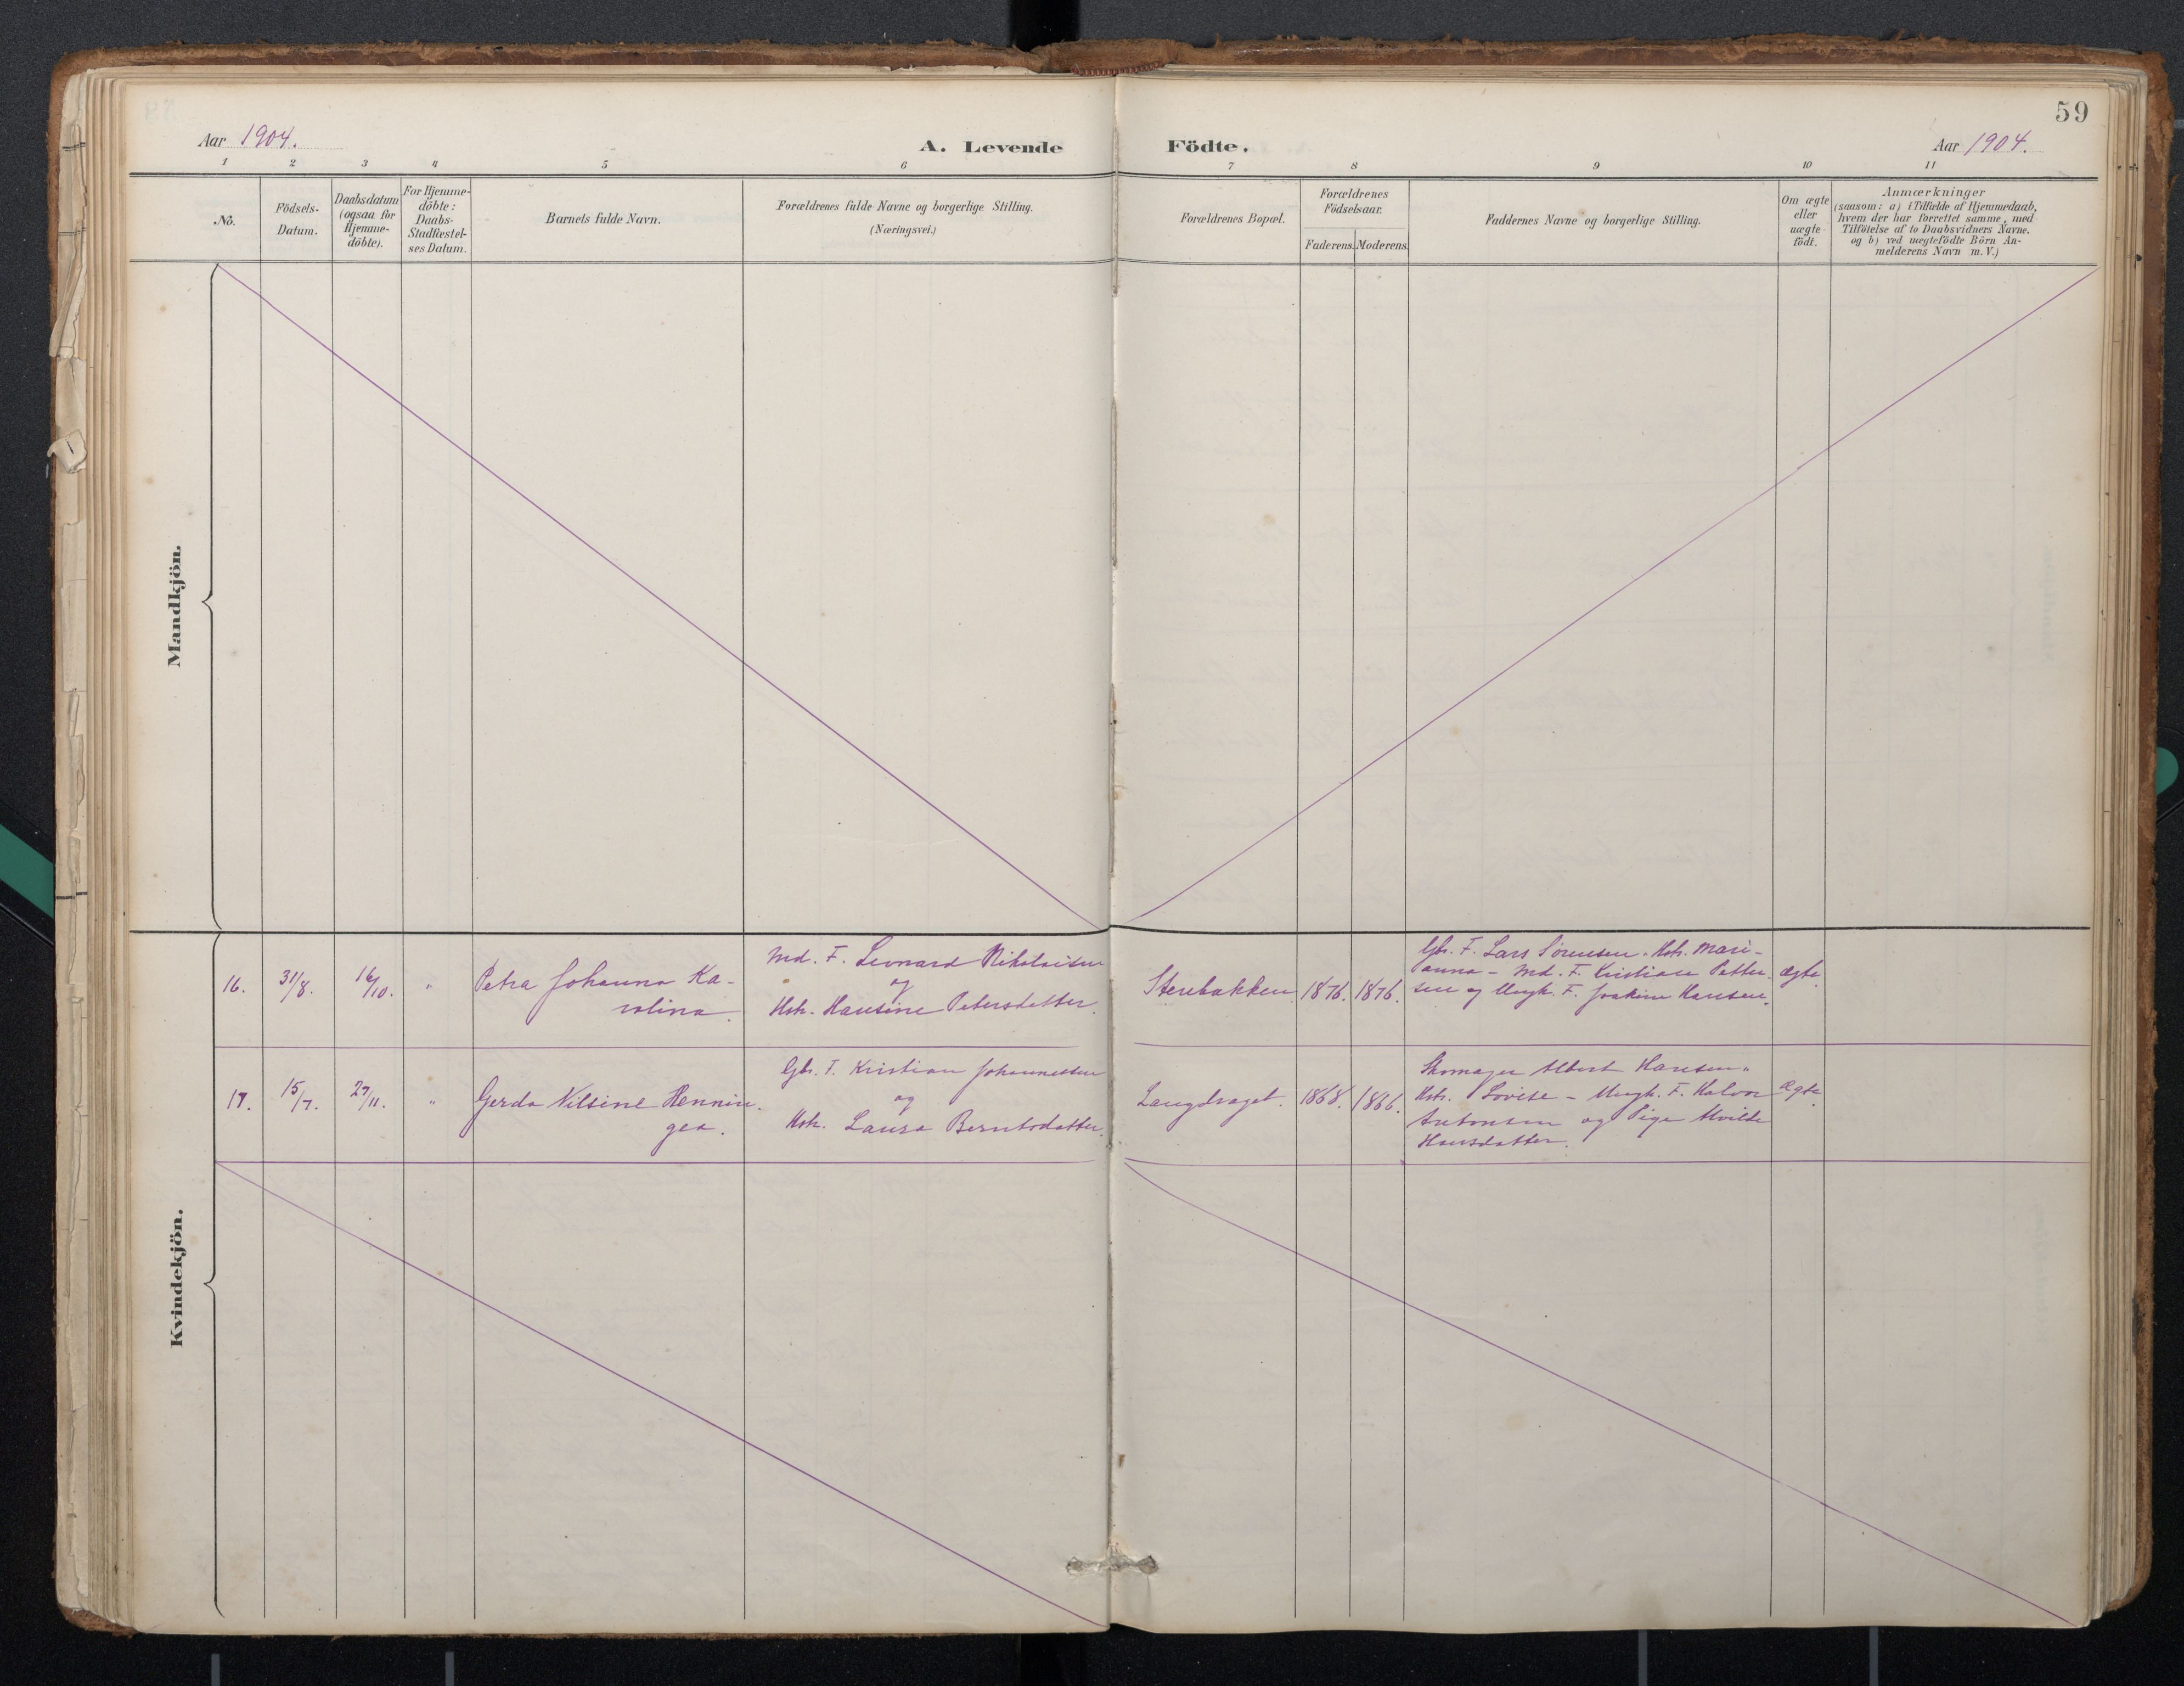 59
Aar 1904.
A. Levende Födte.
Aar 1904.
1 2 3 4 5 6 7 8 9 10 11
No.
Födsels-
Datum.
Daabsdatum
(ogsaa for
Hjemme-
döbte).
For Hjemme-
döbte:
Daabs-
Stadfæstel-
ses Datum.
Barnets fulde Navn.
Forældrenes fulde Navne og borgerlige Stilling.
(Næringsvei.)
Forældrenes Bopæl.
Forældrenes
Födselsaar.
Faderens. Moderens.
Faddernes Navne og borgerlige Stilling.
Om ægte
eller
uægte
födt.
Anmærkninger
(saasom: a) i Tilfælde af Hjemmedaab,
hvem der har forrettet samme, med
Tilföielse af to Daabsvidners Navne,
og b) ved uægtefödte Börn An-
melderens Navn m. V.)
Mandkjön.
Kvindekjön.
16.
31/8.
16/10.
"
Petra Johanna Ka-
rolina.
Md. F. Leonard Nikolaisen
og
Hstr. Hansine Petersdatter.
Stenbakken
1876.
1876.
Gbr. F. Lars Sörensen. Hstr. Mari-
anna - Md. F. Kristian Petter-
sen og Ungk. F. Joakim Hansen.
Ægte
17.
15/7.
27/11.
"
Gerda Nilsine Hennin-
gea.
Gbr. F. Kristian Johannessen
og
Hstr. Laura Berntsdatter.
Langdraget.
1868.
1866.
Skomager Albert Hansen "
Hstr. Lovise - Ungk. F. Halvor
Antonsen og Pige Alvilde
Hansdatter.
Ægte